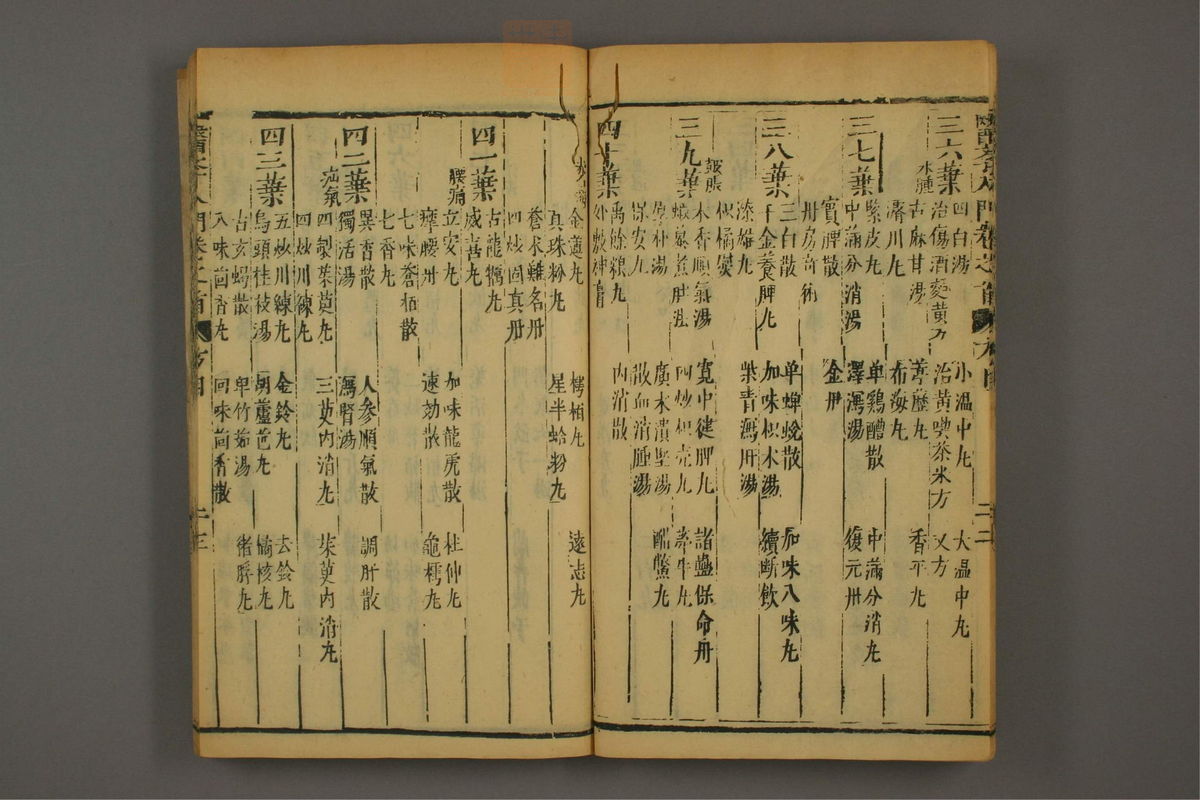 三六葉 水腫
四白湯 小溫中丸 大溫中丸
治傷酒麪黃方 治黃喫茶米方 又方
古麻甘湯 葶藶丸 香平丸
濬川丸 布海丸
三七葉
紫皮丸 单鷄醴散 中滿分消丸
中滿分消湯 澤瀉湯 復元丹
實脾散 金丹
丹房奇術
三八葉
三白散 单蟬蛻散 加味八味丸
千金養脾丸 加味枳木湯 續斷飲
漆雄丸 柴青瀉肝湯
枳橘煎
三九葉 皷脹
木香順氣湯 寬中健脾丸 諸蠱保命丹
蝦蟇煮肚法 四炒枳壳丸 牽牛丸
厚朴湯 廣木潰堅湯 醋鱉丸
保安丸 散血消腫湯
禹餘粮丸 內消散
四十葉
外敷神膏
金蓮丸 樗栢丸 遠志丸
真珠粉丸 星半蛤粉丸
蒼朮難名丹
四炒固真丹
古龍㹇丸
威喜丸
四一葉 腰痛
立安丸 加味龍虎散 杜仲丸
摩腰丹 速効散 龜樗丸
七味蒼栢散
七香丸
異香散 人参順氣散 調肝散
獨活湯 瀉腎湯
四二葉 疝氣
四製茱萸丸 三萸內消丸 茱萸內消丸
四炒川練丸
五炒川練丸 金鈴丸 去鈴丸
烏頭桂枝湯 胡蘆芭丸 橘核丸
四三葉
古玄蝎散 单竹茹湯 猪脬丸
八味茴香丸 回味茴香散
醫李入門卷之首 方目 二三